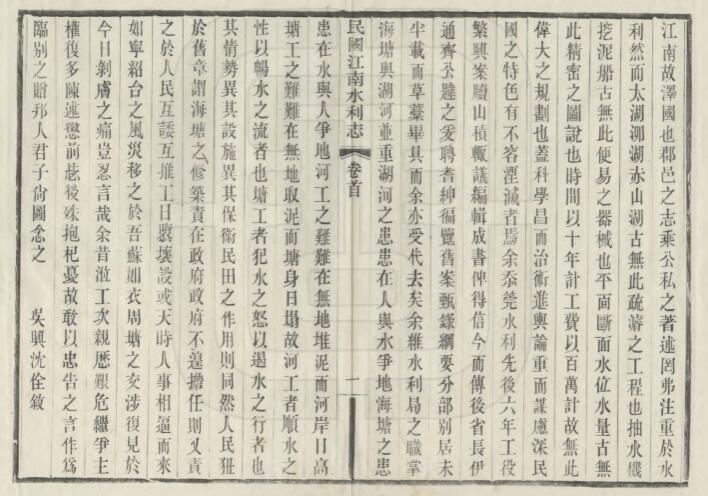 江南故澤國也郡邑之志乘公私之著述罔弗注重於水
利然而太湖泖湖赤山湖古無此疏濬之工程也抽水機
挖泥船古無此便易之器械也平面斷面水位水量古無
此精密之圖說也時間以十年計工費以百萬計故無此
偉大之規劃也蓋科學昌而治術進輿論重而謀慮深民
國之特色有不容湮滅者焉余忝筦水利先後六年工役
繁興案牘山積輒議編輯成書俾得信今而傳後省長伊
通齊公韙之爰聘耆紳徧覽舊案甄錄綱要分部別居未
半載而草藁畢具而余亦受代去矣余維水利局之職掌
海塘與湖河並重湖河之患患在人與水爭地海塘之患
民國江南水利志
卷首
一
患在水與人爭地河工之難難在無地堆泥而河岸日高
塘工之難難在無地取泥而塘身日塌故河工者順水之
性以暢水之流者也塘工者犯水之怒以遏水之行者也
其情勢異其設施異其保衛民田之作用則同然人民狃
於舊章謂海塘之修築責在政府政府不遑擔任則又責
之於人民互諉互推工日隳壞設或天時人事相逼而來
如寧紹台之風災移之於吾蘇如衣周塘之交涉復見於
今日剝膚之痛豈忍言哉余昔涖工次親歷艱危繼爭主
權復多陳述懲前毖後殊抱杞憂故敢以忠告之言作爲
臨別之贈邦人君子尙圖念之
吳興沈佺敘